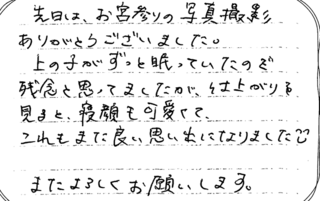 先日は、お宮参りの写真撮影
ありがとうございました。
上の子がずっと眠っていたので
残念と思ってましたが、仕上がりを
見ると、寝顔も可愛くて、
これもまた良い思い出になりました
またよろしくお願いします。